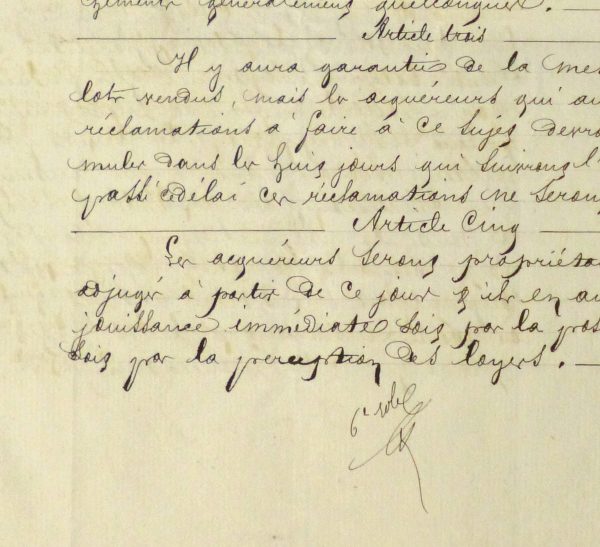 généralement quelconques. —
Article trois
Il y aura garantie de la mes
lots vendus, mais les acquéreurs qui au
réclamations à faire à ce sujet devro
muler dans les huit jours qui suivront l'
passé ce délai ces réclamations ne seront
Article Cinq
Les acquéreurs seront propriéta
adjugés à partir de ce jour & ils en au
jouissance immédiate soit par la pos
soit par la perception des loyers. —